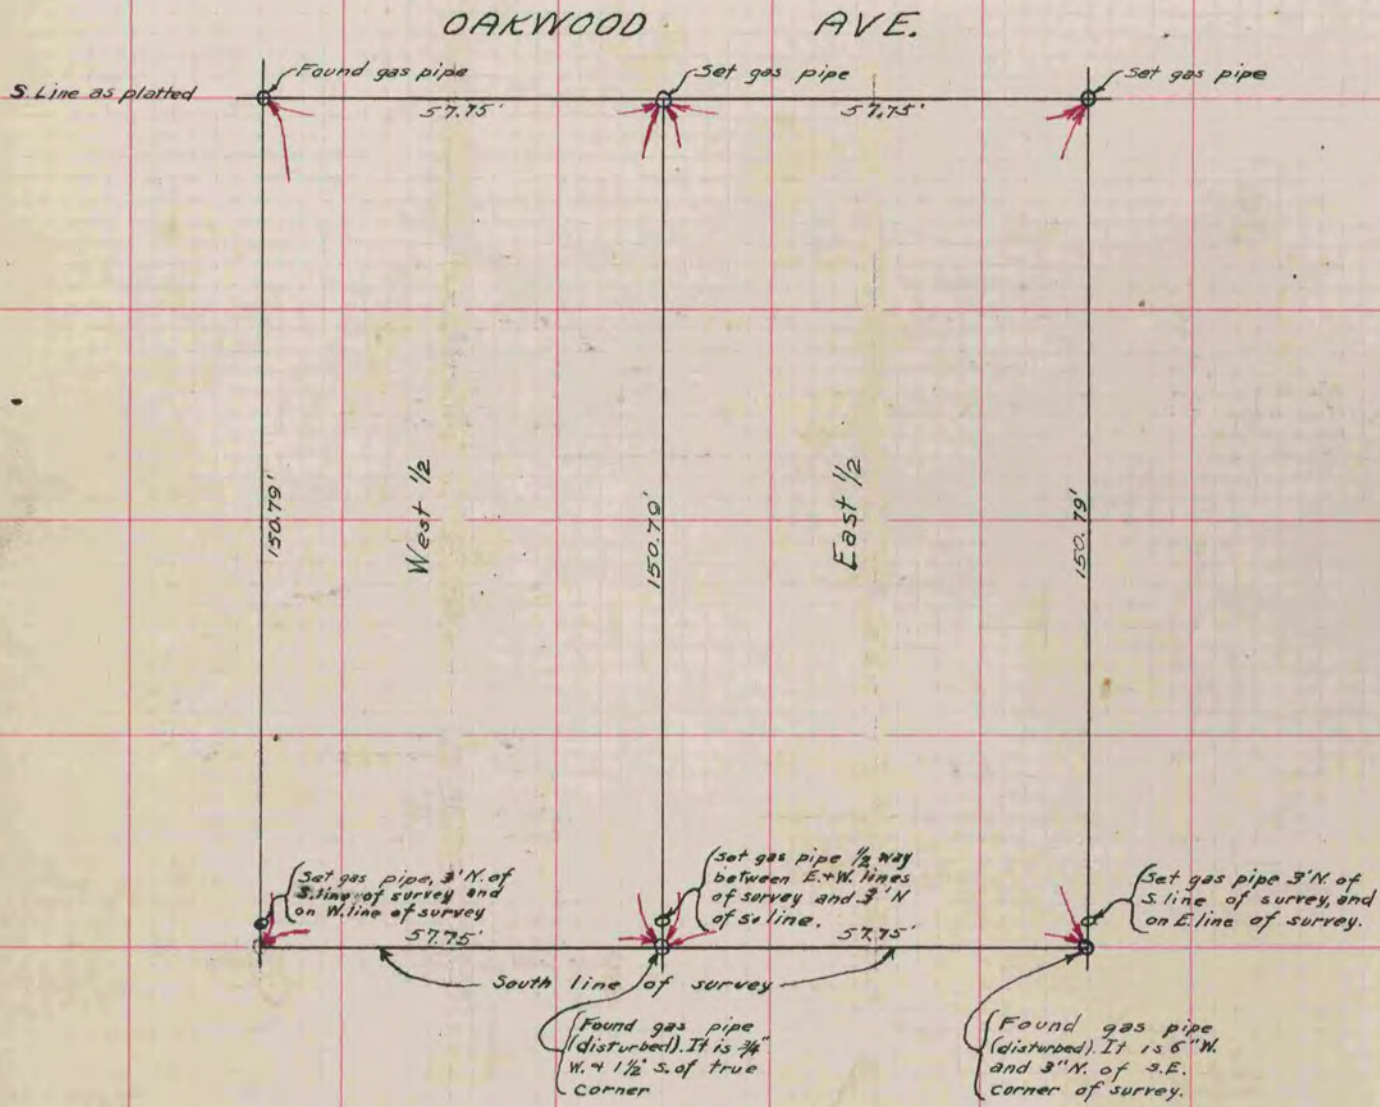 OAKWOOD AVE.
Found gas pipe
Set gas pipe
Set gas pipe
S. Line as platted
57.75'
57.75'
150.79'
West 1/2
150.79'
East 1/2
150.79'
Set gas pipe, 3' N. of
S. line of survey and
on W. line of survey
Set gas pipe 1/2 way
between E. & W. lines
of survey and 3' N
of so line.
Set gas pipe 3' N. of
S. line of survey, and
on E. line of survey.
57.75'
57.75'
South line of survey
Found gas pipe
(disturbed). It is 3/4"
W. & 1 1/2" S. of true
corner
Found gas pipe
(disturbed). It is 6" W.
and 3" N. of S.E.
corner of survey.